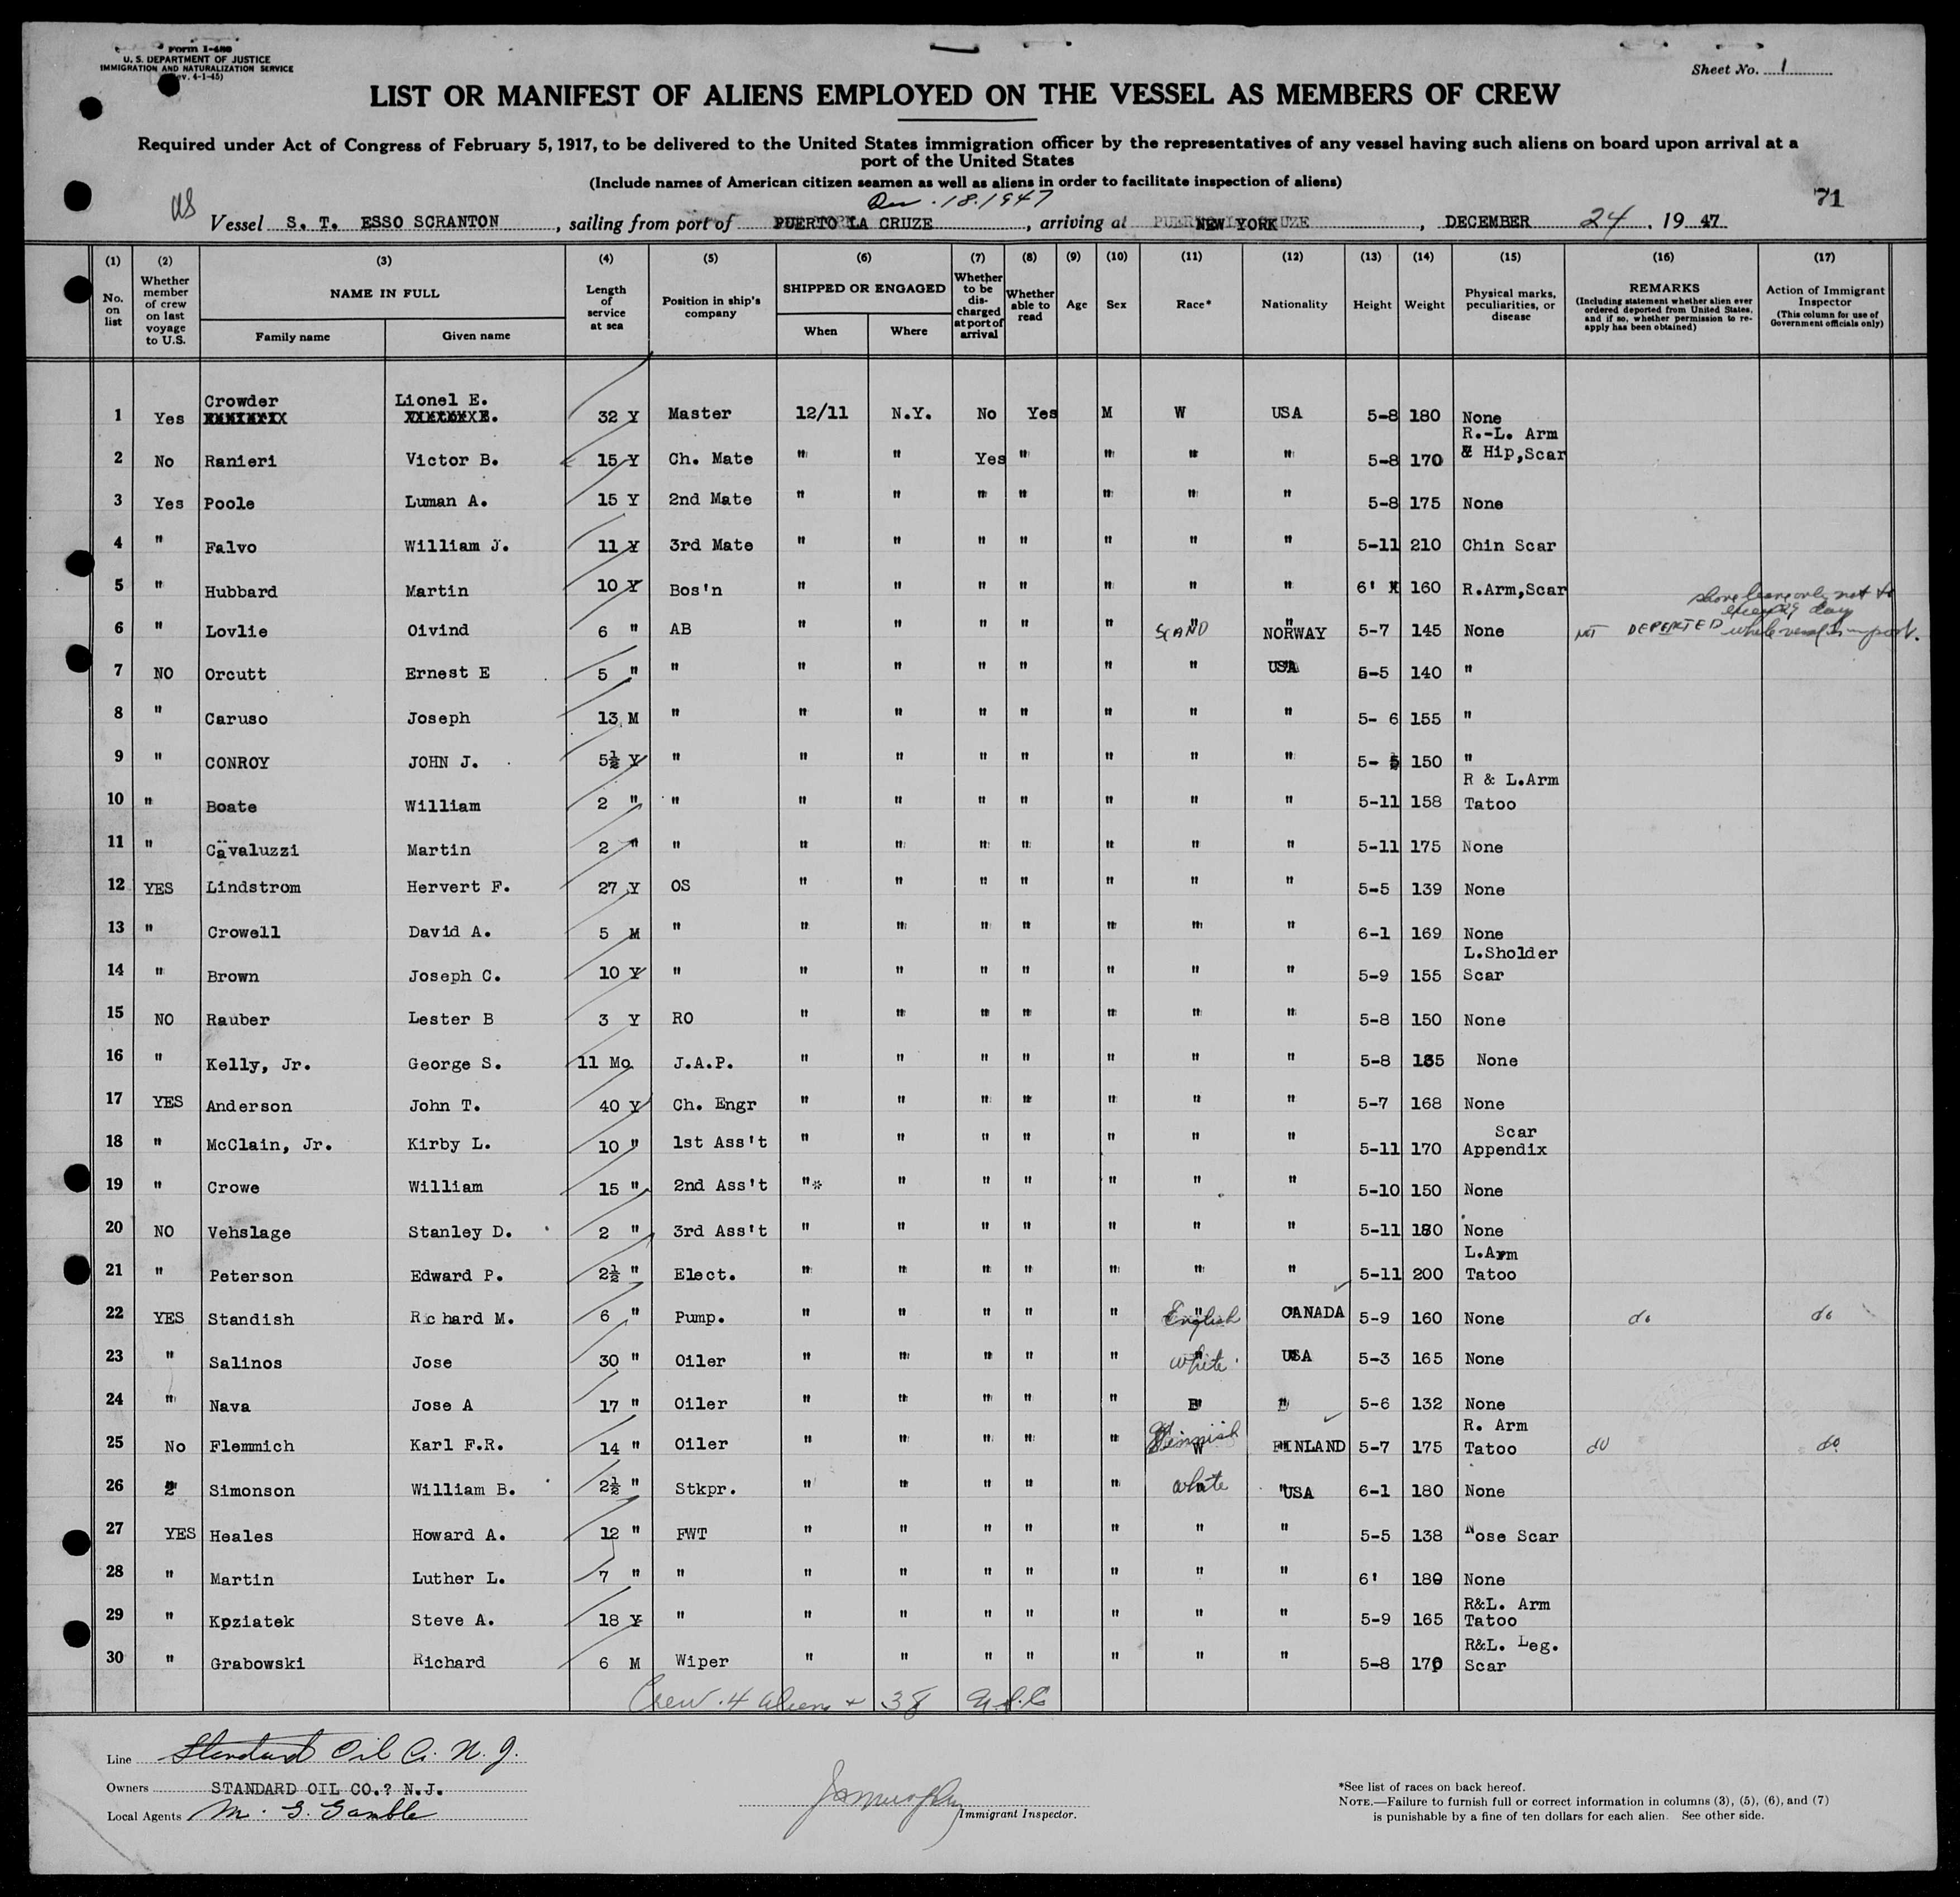 Form I-480
U. S. DEPARTMENT OF JUSTICE
IMMIGRATION AND NATURALIZATION SERVICE
(Rev. 4-1-45)
Sheet No. 1
LIST OR MANIFEST OF ALIENS EMPLOYED ON THE VESSEL AS MEMBERS OF CREW
Required under Act of Congress of February 5, 1917, to be delivered to the United States immigration officer by the representatives of any vessel having such aliens on board upon arrival at a
port of the United States
(Include names of American citizen seamen as well as aliens in order to facilitate inspection of aliens)
71
US
18. 1947
Vessel S. T. ESSO SCRANTON, sailing from port of PUERTO LA CRUZE, arriving at NEW YORK, DECEMBER 24, 1947
(1) (2) (3) (4) (5) (6) (7) (8) (9) (10) (11) (12) (13) (14) (15) (16) (17)
No. on list
Whether member of crew on last voyage to U.S.
NAME IN FULL
Family name
Given name
Length of service at sea
Position in ship's company
SHIPPED OR ENGAGED
When
Where
Whether to be discharged at port of arrival
Whether able to read
Age
Sex
Race*
Nationality
Height
Weight
Physical marks, peculiarities, or disease
REMARKS
(Including statement whether alien ever ordered deported from United States, and if so, whether permission to reapply has been obtained)
Action of Immigrant Inspector
(This column for use of Government officials only)
1 Yes Crowder Lionel E. 32 Y Master 12/11 N.Y. No Yes M W USA 5-8 180 None
2 No Ranieri Victor B. 15 Y Ch. Mate " " Yes " " " " 5-8 170 R.-L. Arm & Hip,Scar
3 Yes Poole Luman A. 15 Y 2nd Mate " " " " " " " 5-8 175 None
4 " Falvo William J. 11 Y 3rd Mate " " " " " " " 5-11 210 Chin Scar
5 " Hubbard Martin 10 Y Bos'n " " " " " " " 6' 160 R.Arm,Scar
6 " Lovlie Oivind 6 " AB " " " " " SCAND NORWAY 5-7 145 None NOT DEPORTED shore leave only not to exceed 29 days while vessel is in port.
7 NO Orcutt Ernest E 5 " " " " " " " " USA 5-5 140 "
8 " Caruso Joseph 13 M " " " " " " " " 5- 6 155 "
9 " CONROY JOHN J. 5½ Y " " " " " " " " 5- 5 150 "
10 " Boate William 2 " " " " " " " " " 5-11 158 R & L.Arm Tatoo
11 " Cavaluzzi Martin 2 " " " " " " " " " 5-11 175 None
12 YES Lindstrom Hervert F. 27 Y OS " " " " " " " 5-5 139 None
13 " Crowell David A. 5 M " " " " " " " " 6-1 169 None
14 " Brown Joseph C. 10 Y " " " " " " " " 5-9 155 L.Sholder Scar
15 NO Rauber Lester B 3 Y RO " " " " " " " 5-8 150 None
16 " Kelly, Jr. George S. 11 Mo J.A.P. " " " " " " " 5-8 185 None
17 YES Anderson John T. 40 Y Ch. Engr " " " " " " " 5-7 168 None
18 " McClain, Jr. Kirby L. 10 " 1st Ass't " " " " " " " 5-11 170 Scar Appendix
19 " Crowe William 15 " 2nd Ass't "* " " " " " " 5-10 150 None
20 NO Vehslage Stanley D. 2 " 3rd Ass't " " " " " " " 5-11 180 None
21 " Peterson Edward P. 2½ " Elect. " " " " " " " 5-11 200 L.Arm Tatoo
22 YES Standish Richard M. 6 " Pump. " " " " " English CANADA 5-9 160 None do do
23 " Salinos Jose 30 " Oiler " " " " " white USA 5-3 165 None
24 " Nava Jose A 17 " Oiler " " " " " B " 5-6 132 None
25 No Flemmich Karl F.R. 14 " Oiler " " " " " Finnish W FINLAND 5-7 175 R. Arm Tatoo do do
26 " Simonson William B. 2½ " Stkpr. " " " " " white "USA 6-1 180 None
27 YES Heales Howard A. 12 " FWT " " " " " " " 5-5 138 Nose Scar
28 " Martin Luther L. 7 " " " " " " " " " 6' 180 None
29 " Kpziatek Steve A. 18 Y " " " " " " " " 5-9 165 R&L. Arm Tatoo
30 " Grabowski Richard 6 M Wiper " " " " " " " 5-8 170 R&L. Leg. Scar
Crew . 4 aliens + 38 U.S.C
Line Standard Oil Co. N. J.
Owners STANDARD OIL CO.? N.J.
Local Agents M. G. Gamble
Immigrant Inspector.
*See list of races on back hereof.
NOTE.—Failure to furnish full or correct information in columns (3), (5), (6), and (7)
is punishable by a fine of ten dollars for each alien. See other side.